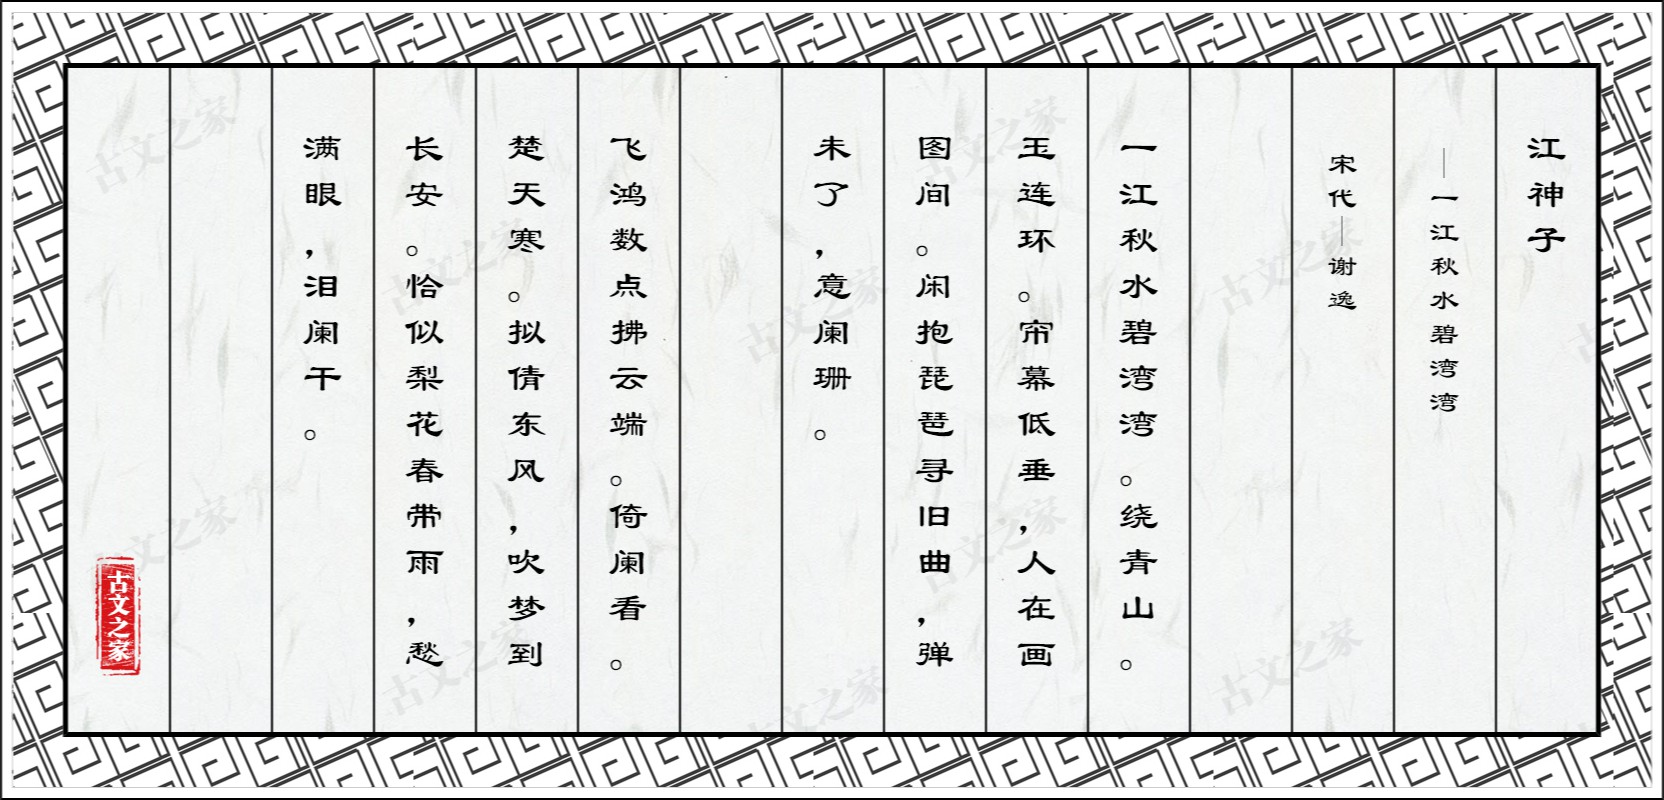 江神子
—一江秋水碧湾湾
宋代—谢逸
一江秋水碧湾湾。绕青山。
玉连环。帘幕低垂,人在画
图间。闲抱琵琶寻旧曲,弹
未了,意阑珊。
飞鸿数点拂云端。倚阑看。
楚天寒。拟倩东风,吹梦到
长安。恰似梨花春带雨,愁
满眼,泪阑干。
古文之家